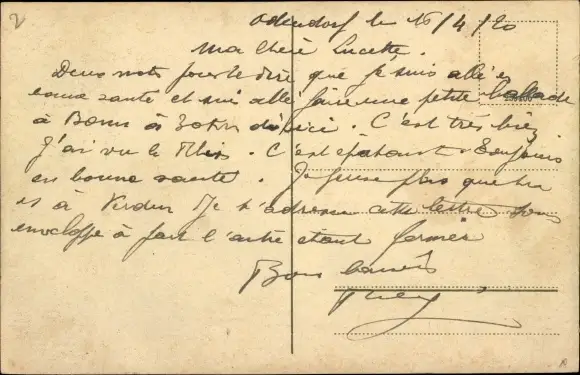 2
Odendorf le 16/4/20
Ma chère Lucette.
Deux mots pour te dire que je suis allé
bonne santé et suis allé faire une petite ballade
à Bonn à 30 km d'ici. C'est très bien
J'ai vu le Rhin. C'est épatant. Toujours
en bonne santé. Je pense plus que
à Verdun. Je t'adresse cette lettre sous
enveloppe à part l'autre étant fermée
Bons baisers